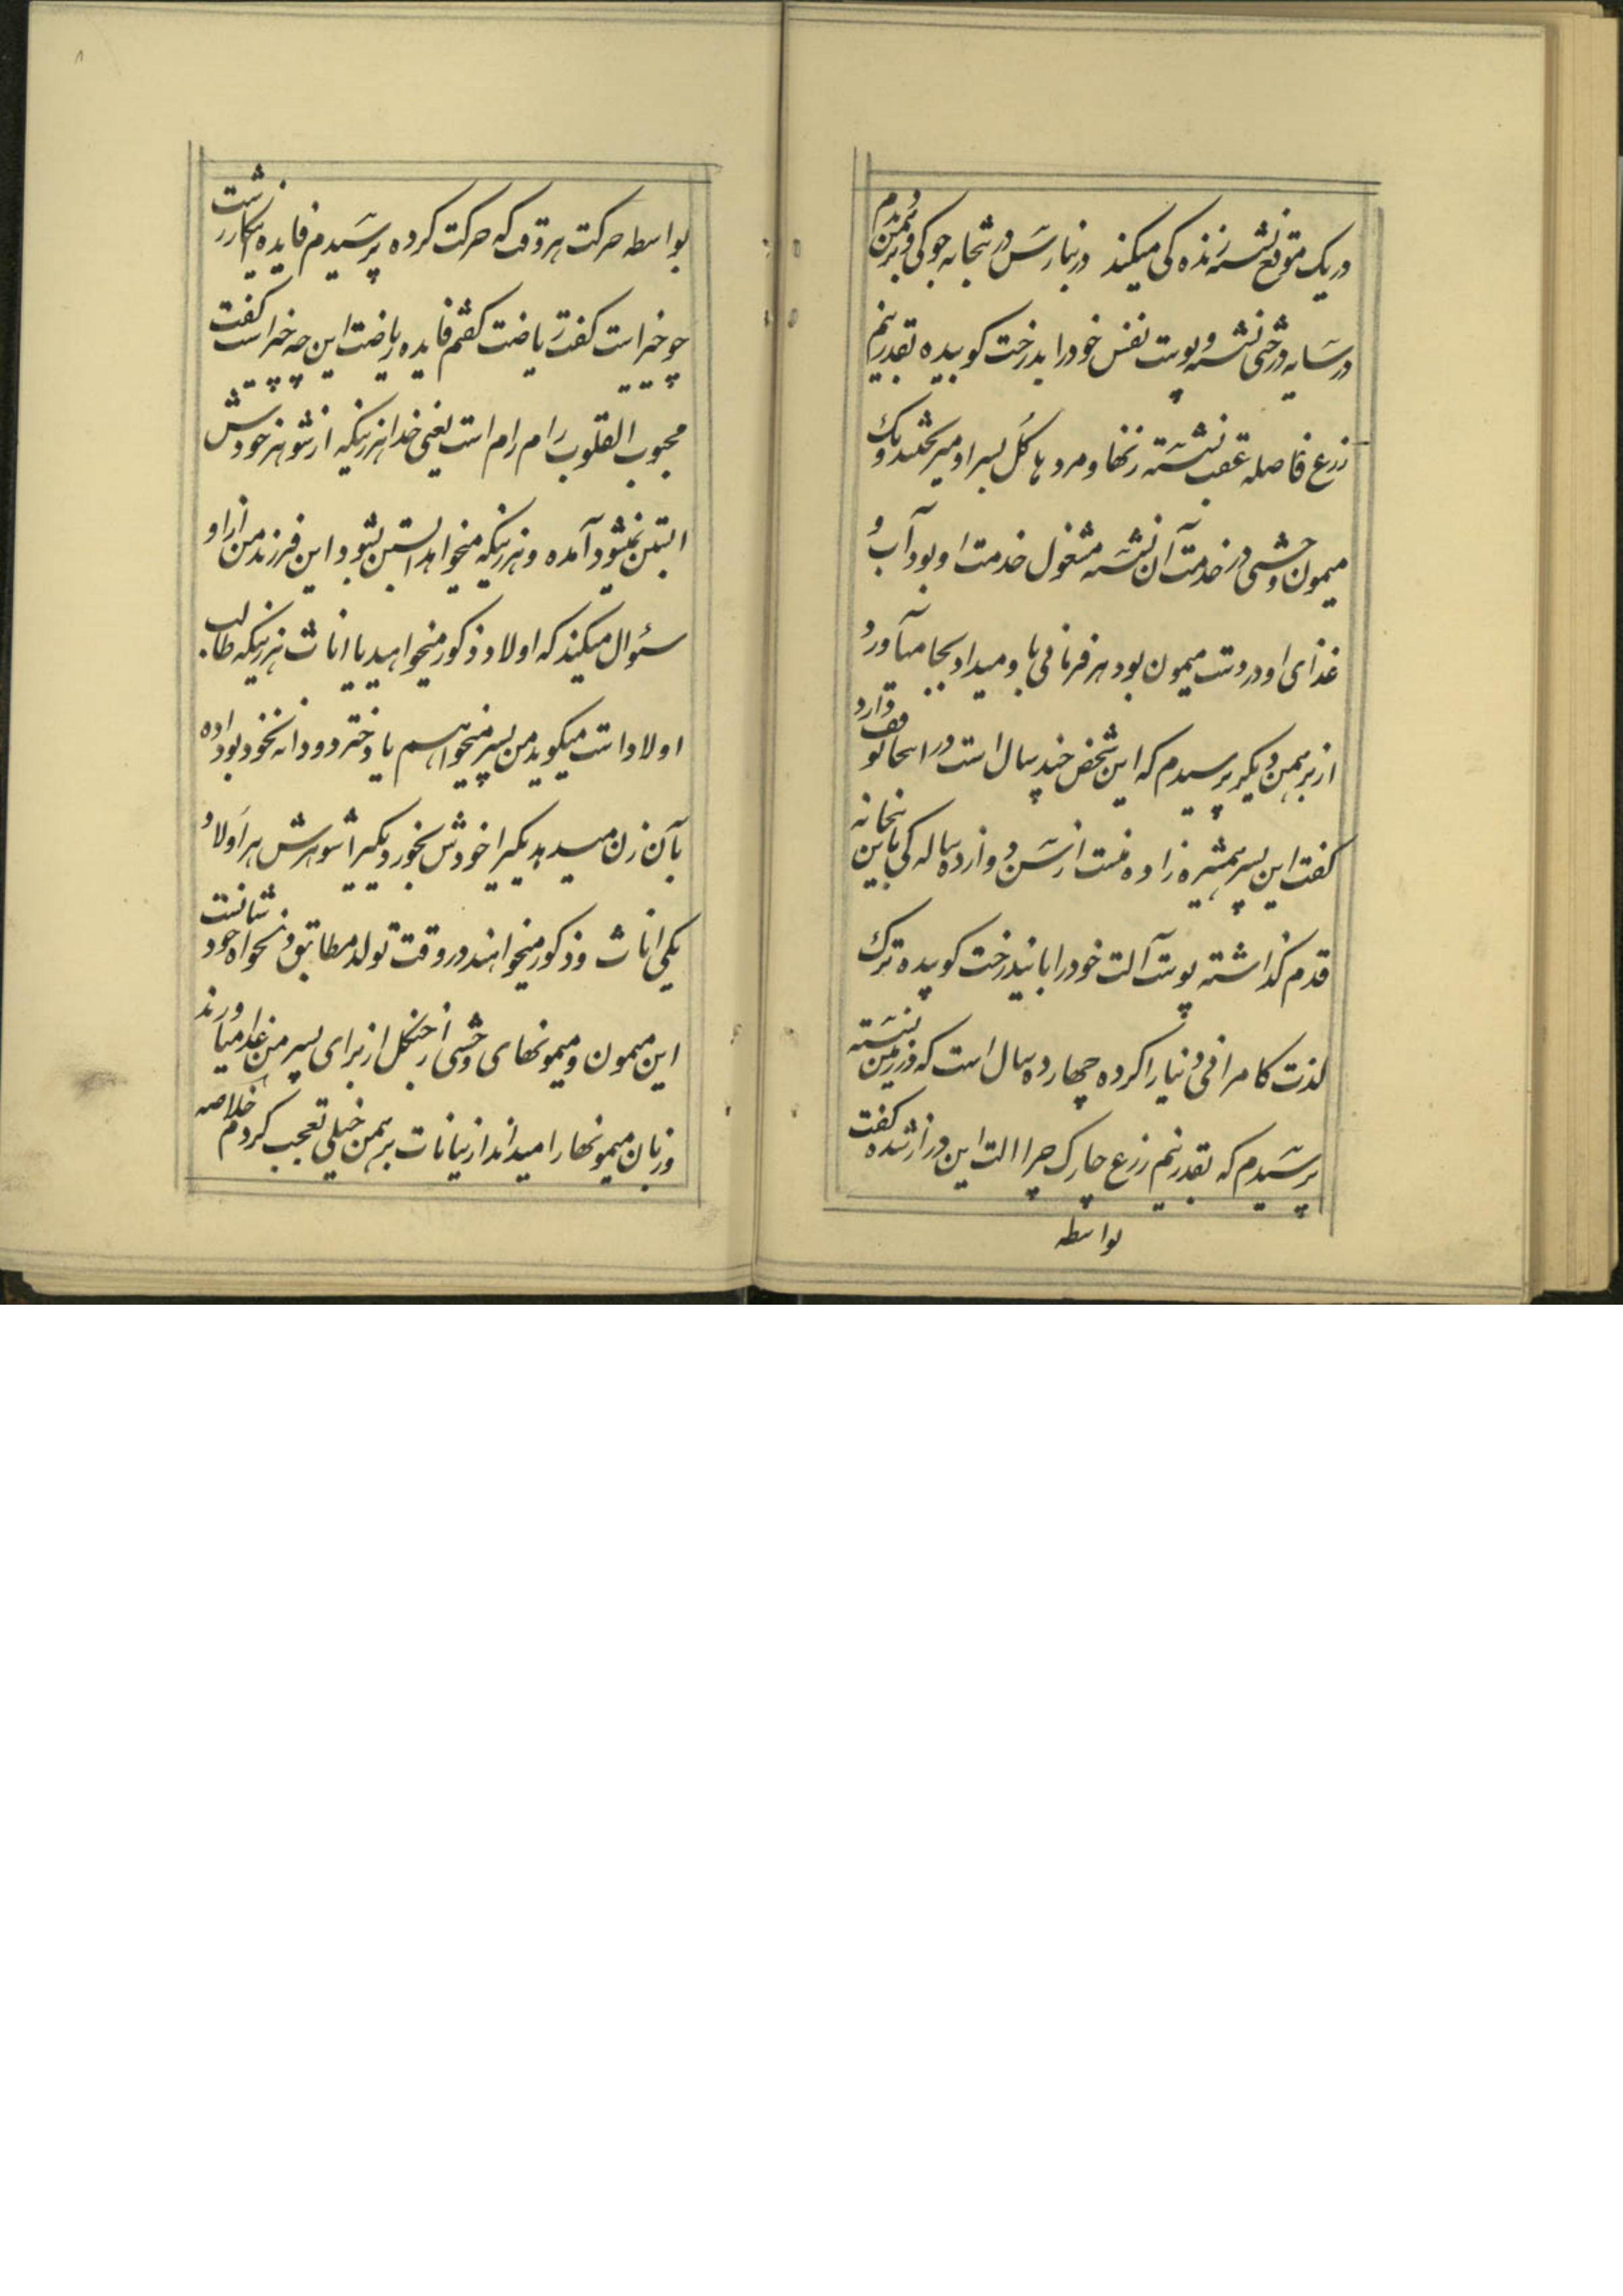 در یک موقع نشسته زنده کی میکند در بنارس در بتخانه جوکی و برهمن دیدم
در سایه درختی نشسته و پوست نفس خود را بدرخت کوبیده بقدر نیم
زرع فاصله عقب نشسته زنها و مردها گل بسر او میریختند و یک
میمون وحشی در خدمت آن نشسته مشغول خدمت او بود آب و
غذای او در دست میمون بود هر فرمانی باو میداد بجا میآورد و
از برهمن دیگر پرسیدم که این شخص چند سال است در اینجا توقف دارد
گفت این پسر همشیره زاده منست از سن دوازده ساله کی باین بتخانه
قدم گذاشته پوست آلت خود را باین درخت کوبیده ترک
لذت کامرانی دنیا را کرده چهارده سال است که در زمین نشسته
پرسیدم که بقدر نیم زرع چارک چرا الت این دراز شده گفت
بواسطه
۸
بواسطه حرکت هر وقت که حرکت کرده پرسیدم فایده اینکار زشت
چو خیر است گفت ریاضت گفتم فایده ریاضت این چه خیر است گفت
محبوب القلوب رام رام است یعنی خدا هر زنیکه از شوهر خودش
ابستن نمیشود آمده و هر زنیکه میخواهد ابستن بشود این فرزند من از او
سئوال میکند که اولاد ذکور میخواهید یا اناث هر زنیکه طالب
اولاد است میگوید من پسر میخواهم یا دختر دو دانه نخود بو داده
بآن زن میدهد یکیرا خودش بخورد یکیرا شوهرش هر اولاد
یکی اناث و ذکور میخواهند در وقت تولد مطابق دلخواه خود شانست
این میمون و میمونهای وحشی از جنگل از برای پسر من غذا میاورند
و زبان میمونها را میداند از بیانات برهمن خیلی تعجب کردم خلاصه